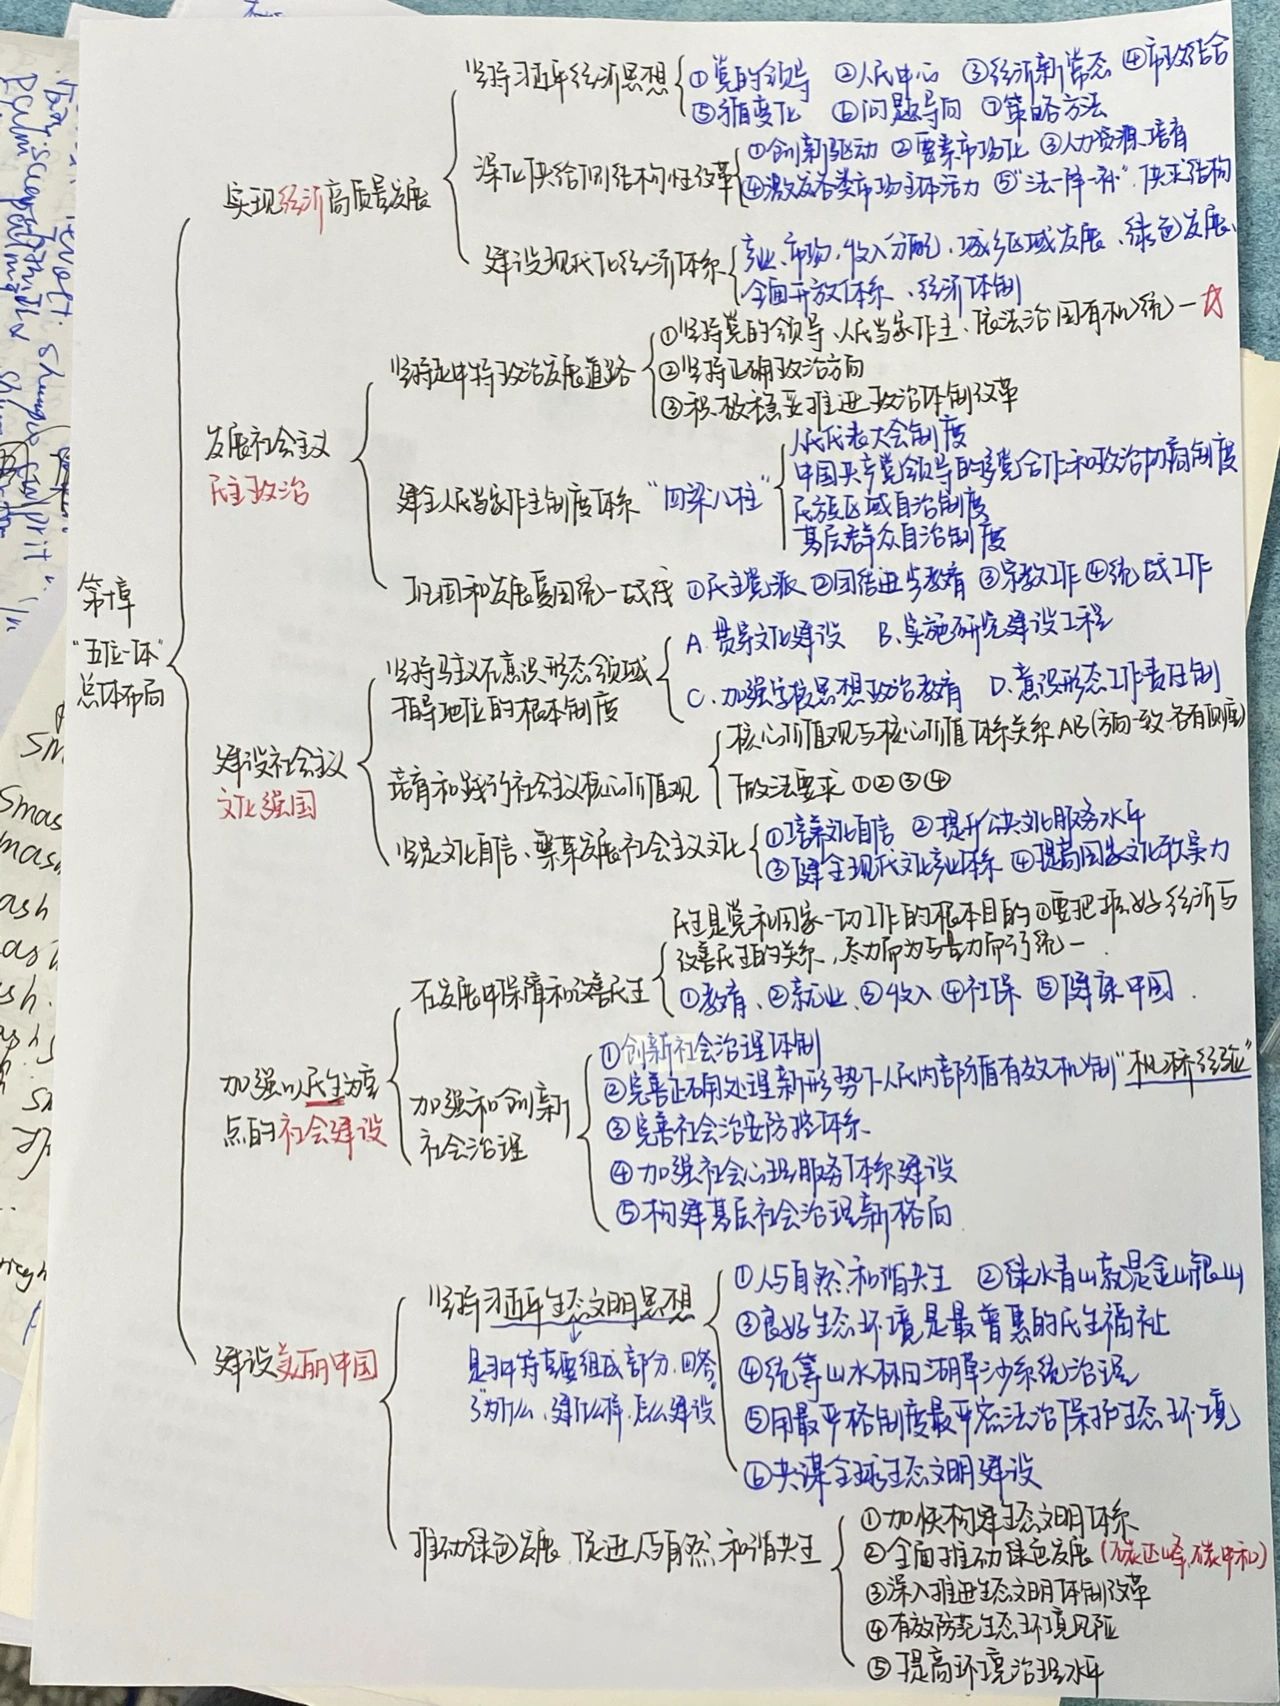 第十章
"五位一体"
总体布局
实现经济高质量发展
坚持习近平经济思想
①党的领导 ②人民中心 ③经济新常态 ④市政结合
⑤ 变化 ⑥问题导向 ⑦策略方法
深化供给侧结构性改革
①创新驱动 ②要素市场化 ③人力资源培育
④激发各类市场主体活力 ⑤"法一降一补",供求结构
建设现代化经济体系
产业、市场、收入分配、城乡区域发展、绿色发展、
全面开放体系、经济体制
发展社会主义
民主政治
坚持走中特政治发展道路
①坚持党的领导、人民当家作主、依法治国有机统一☆
②坚持正确政治方向
③积极稳妥推进政治体制改革
健全人民当家作主制度体系 "四梁八柱"
人民代表大会制度
中国共产党领导的多党合作和政治协商制度
民族区域自治制度
基层群众自治制度
巩固和发展爱国统一战线 ①民主党派 ②团结进步教育 ③宗教工作 ④统战工作
建设社会主义
文化强国
坚持马主义在意识形态领域
指导地位的根本制度
A.贯穿文化建设 B.实施研究建设工程
C.加强学校思想政治教育 D.意识形态工作责任制
培育和践行社会主义核心价值观
核心价值观与核心价值体系关系AB(方向一致,各有侧重)
做法要求 ①②③④
坚定文化自信、繁荣发展社会主义文化
①培养文化自信 ②提升公共文化服务水平
③健全现代文化产业体系 ④提高国家文化软实力
加强以民生为重
点的社会建设
在发展中保障和改善民生
民生是党和国家一切工作的根本目的 ①要把握好经济与
改善民生的关系,尽力而为与量力而行统一
①教育、②就业、③收入 ④社保 ⑤健康中国.
加强和创新
社会治理
①创新社会治理体制
②完善正确处理新形势下人民内部矛盾有效机制"枫桥经验"
③完善社会治安防控体系
④加强社会心理服务体系建设
⑤构建基层社会治理新格局
建设美丽中国
坚持习近平生态文明思想
是习中特重要组成部分,回答
了"为什么、建什么样、怎么建设"
①人与自然和谐共生 ②绿水青山就是金山银山
③良好生态环境是最普惠的民生福祉
④统筹山水林田湖草沙系统治理
⑤用最严格制度最严密法治保护生态环境
⑥共谋全球生态文明建设
推动绿色发展,促进人与自然和谐共生
①加快构建生态文明体系
②全面推动绿色发展(碳达峰,碳中和)
③深入推进生态文明体制改革
④有效防范生态环境风险
⑤提高环境治理水平